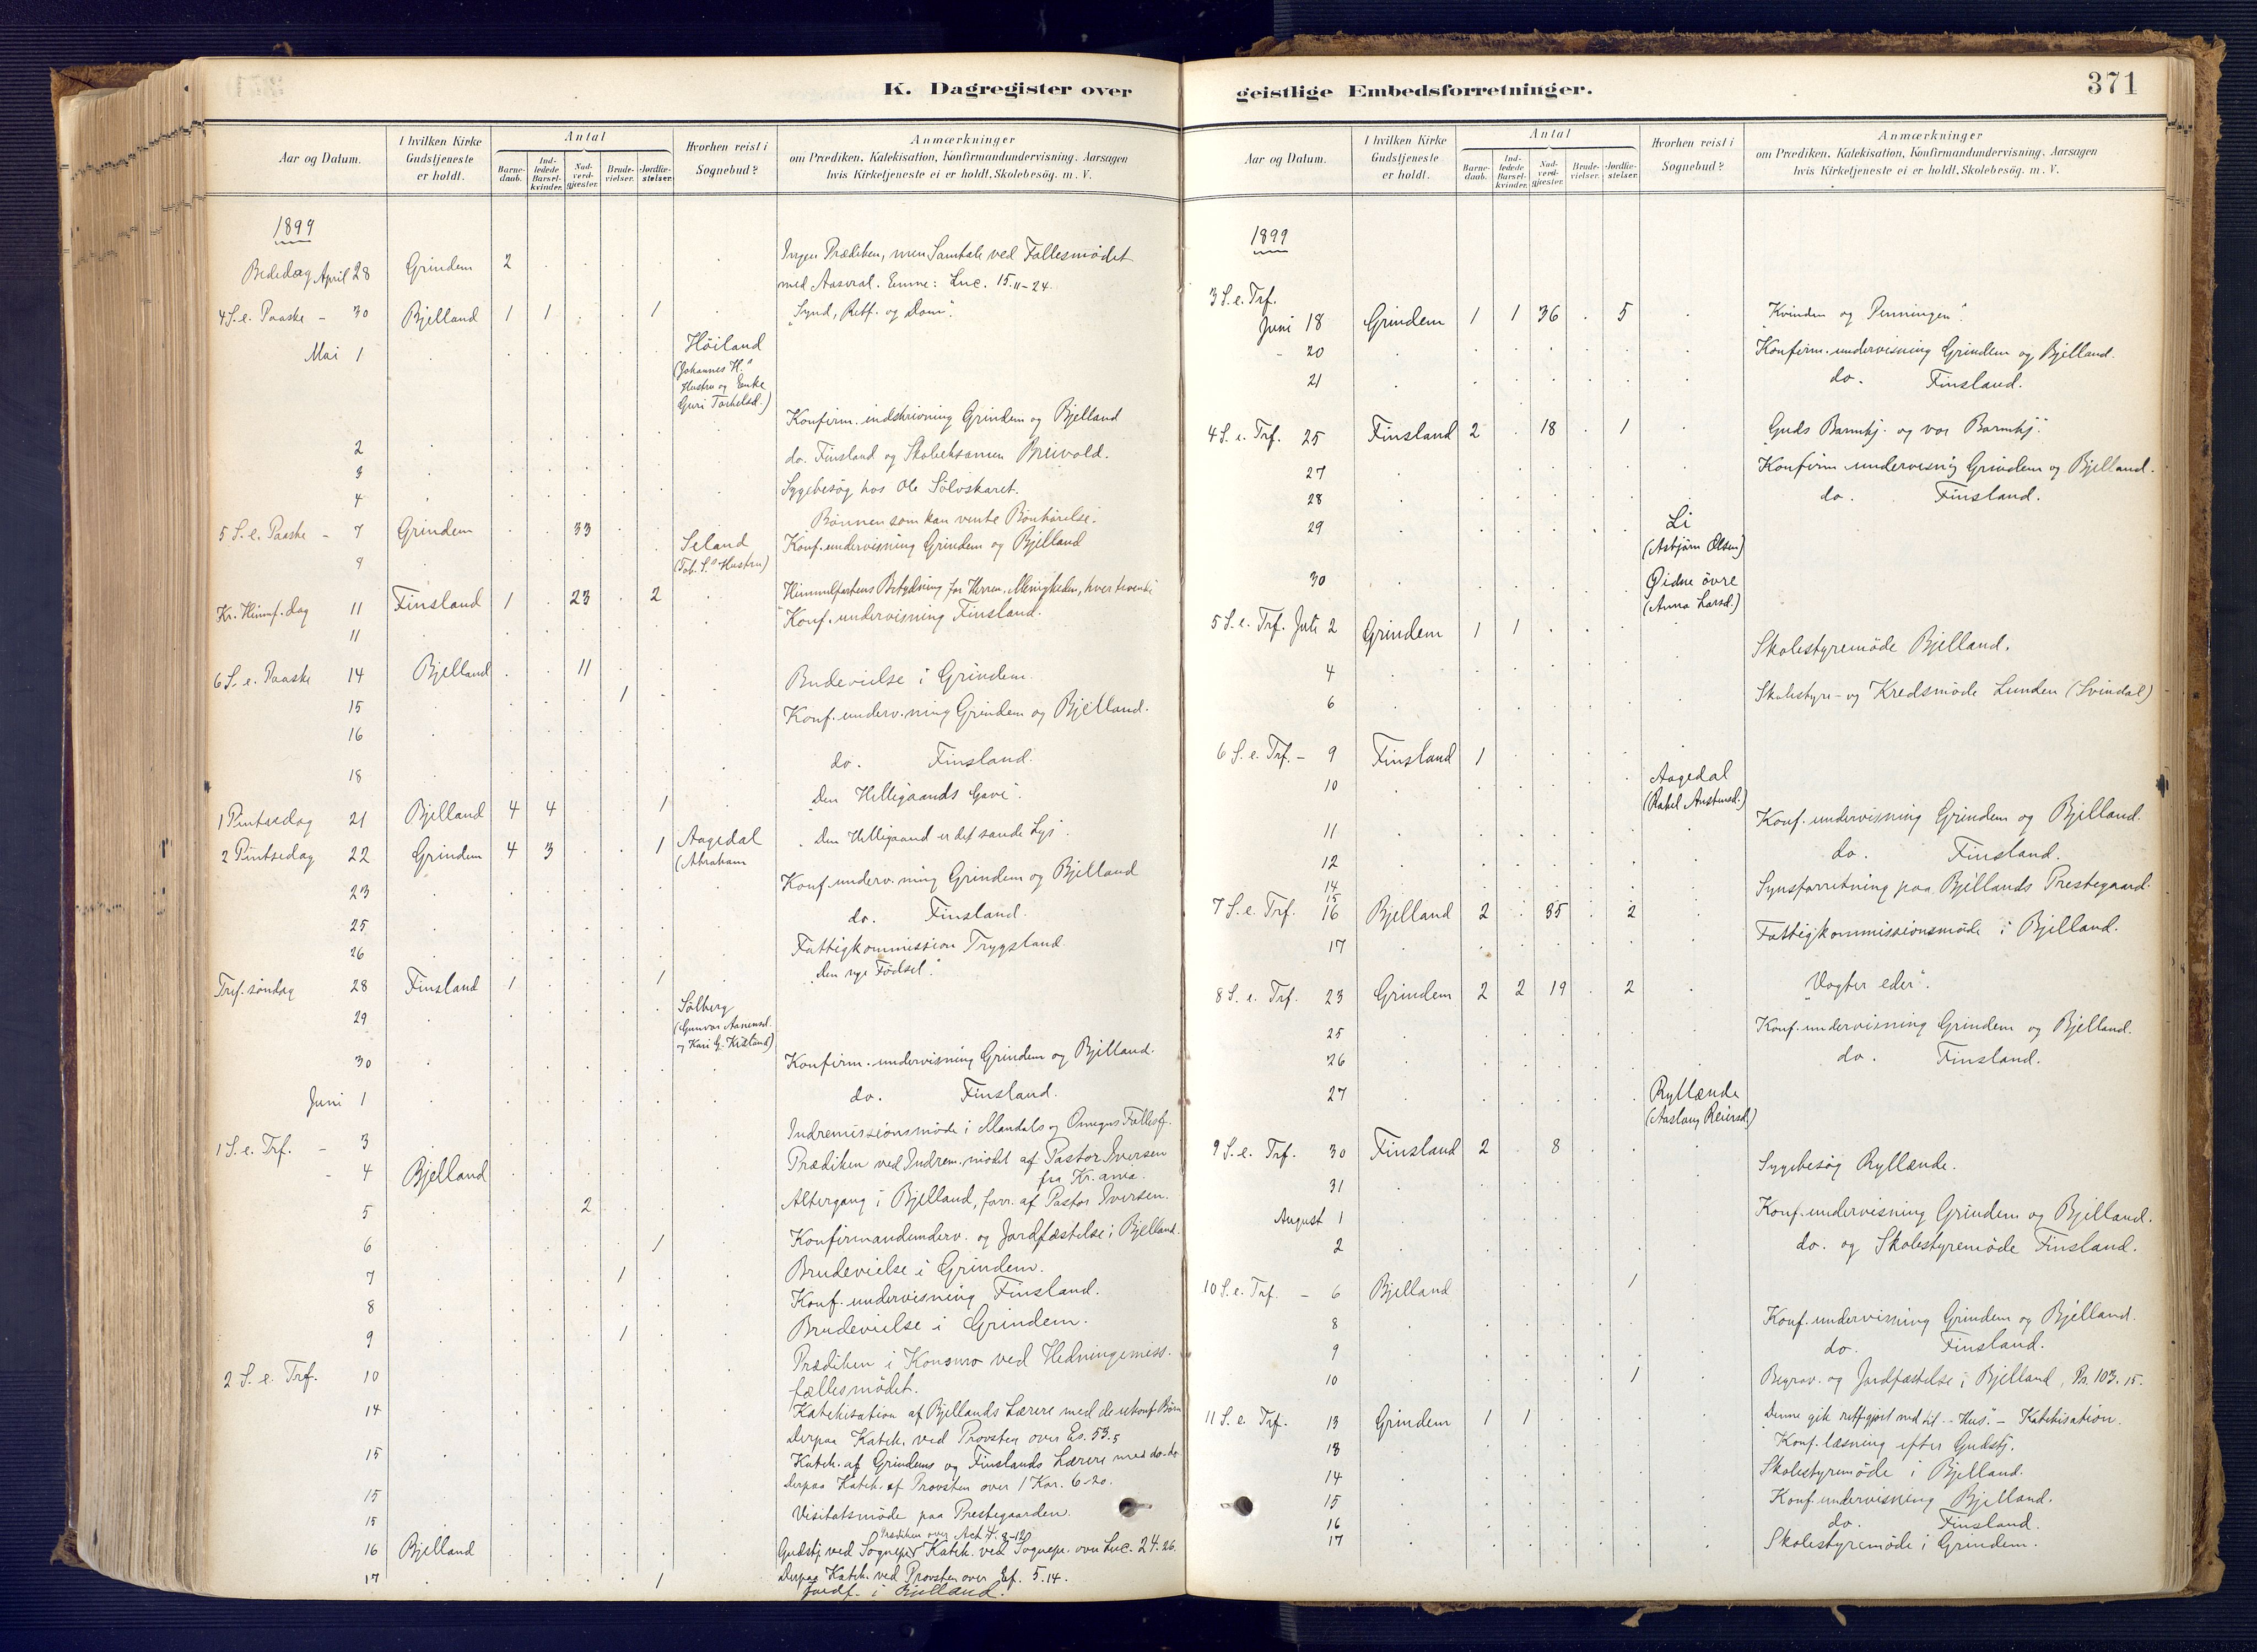 K. Dagregister over
Aar og Datum.
I hvilken Kirke Gudstjeneste er holdt.
Antal
Barnedaab.
Indledede Barselkvinder.
Nadverdgjester.
Brudevielser.
Jordfæstelser.
Hvorhen reist i Sognebud?
Anmærkninger
om Prædiken. Katekisation, Konfirmandundervisning. Aarsagen
hvis Kirketjeneste ei er holdt. Skolebesög. m. V.
1899
Bededag April 28 Grindem 2 Ingen Prædiken, men Samtale ved Fællesmødet
med Aaseral. Emne: Luc. 15. 11-24.
4 S. e. Paaske - 30 Bjelland 1 1 1 "Synd, Retf. og Dom".
Mai 1 Höiland
(Johannes H.s
Hustru og Enke
Guri Torkelsd.)
2 Konfirm. indskrivning Grindem og Bjelland
3 do. Finsland og Skoleeksamen Breivold.
4 Sygebesög hos Ole Sölvskaret.
5 S. e. Paaske - 7 Grindem 33 Bönnen som kan vente Bönhörelse.
9 Seland Konf. undervisning Grindem og Bjelland
(Tob. S.s Hustru)
Kr. Himmf. dag 11 Finsland 1 23 2 "Himmelfartens Betydning for Herren, Menigheden, hver troende
11 Konf. undervisning Finsland.
6 S. e. Paaske 14 Bjelland 11
15 1 Brudevielse i Grindem.
16 Konf. underv.ning Grindem og Bjelland.
18 do. Finsland.
1 Pintsedag 21 Bjelland 4 4 1 "Den Helligaands Gave".
2 Pintsedag 22 Grindem 4 3 1 Aagedal "Den Helligaand er det sande Lys".
(Abraham
23 Konf. underv.ning Grindem og Bjelland
25 do. Finsland.
26 Fattigkommission Trygsland
Tref. söndag 28 Finsland 1 1 "Den nye Födsel".
29 Sölberg
(Gunvor Aanensd.
og Kari G. )
30 Konfirm. undervisning Grindem og Bjelland.
Juni 1 do. Finsland.
3 Indremissionsmöde i Mandals og Omegns Fællesf.
1 S. e. Trf. - 4 Bjelland Prædiken ved Indrem. mödet af Pastor Iversen
fra Kr.ania.
5 2 Altergang i Bjelland, forr. af Pastor Iversen.
6 1 Konfirmandunderv. og Jordfæstelse i Bjelland.
7 1 Brudevielse i Grindem.
8 Konf. undervisning Finsland.
9 1 Brudevielse i Grindem.
2 S. e. Trf. 10 Prædiken i Konsmo ved Hedningemiss.
fællesmödet.
14 Katekisation af Bjellands Lærere med de ukonf. Börn
Derpaa Katek. ved Provsten over Es. 53. 5
15 Katek. af Grindems og Finslands Lærere med do-do
Derpaa Katek. af Provsten over 1 Kor. 6-20.
15
15 Visitatsmöde paa Prestegaarden.
Prædiken over Act 4. 8-12
16 Bjelland Gudstj ved Sognepr. Katek. ved Sognepr. over Luc. 24. 26.
Derpaa Katek. ved Provsten over Ef. 5. 14.
17 1 Jordf. i Bjelland.
geistlige Embedsforretninger.
371
Aar og Datum.
I hvilken Kirke Gudstjeneste er holdt.
Antal
Barnedaab.
Indledede Barselkvinder.
Nadverdgjester.
Brudevielser.
Jordfæstelser.
Hvorhen reist i Sognebud?
Anmærkninger
om Prædiken. Katekisation, Konfirmandundervisning. Aarsagen
hvis Kirketjeneste ei er holdt. Skolebesög. m. V.
1899
3 S. e. Trf.
Juni 18 Grindem 1 1 36 5 "Kvinden og Penningen".
- 20 Konfirm. undervisning Grindem og Bjelland.
21 do. Finsland.
4 S. e. Trf. 25 Finsland 2 18 1 "Guds Barmhj. og vor Barmhj."
27 Konfirm. undervisnig Grindem og Bjelland.
28 do. Finsland.
29 Li
(Asbjörn Olsen)
30 Øidne övre
(Anna Larsd.)
5 S. e. Trf. Juli 2 Grindem 1 1
4 Skolestyremöde Bjelland.
6 Skolestyre- og Kredsmöde Lunden (Svindal)
6 S. e. Trf. - 9 Finsland 1
10 Aagedal
(Rakel Anstensd.)
11 Konf. undervisning Grindem og Bjelland.
12 do. Finsland.
14
15 Synsforretning paa Bjellands Prestegaard.
7 S. e. Trf. 16 Bjelland 2 35 2
17 Fattigkommissionsmöde i Bjelland.
8 S. e. Trf. 23 Grindem 2 2 19 2 "Vogter eder".
25 Konf. undervisning Grindem og Bjelland.
26 do. Finsland.
27 Ryllænde
(Aaslaug Reiersd.)
9 S. e. Trf. 30 Finsland 2 8
31 Sygebesög Ryllænde.
August 1 Konf. undervisning Grindem og Bjelland.
2 do. og Skolestyremöde Finsland.
10 S. e. Trf. - 6 Bjelland 1
8 Konf. undervisning Grindem og Bjelland.
9 do. Finsland.
10 1 Begrav. og Jordfæstelse i Bjelland, Ps. 103. 15.
11 S. e. Trf. 13 Grindem 1 1 "Denne gik retfgjort ned til - Hus". - Katekisation.
13 Konf. læsning efter Gudstj.
14 Skolestyremöde i Bjelland.
15 Konf. undervisning Bjelland.
16 do. Finsland.
17 Skolestyremöde i Grindem.